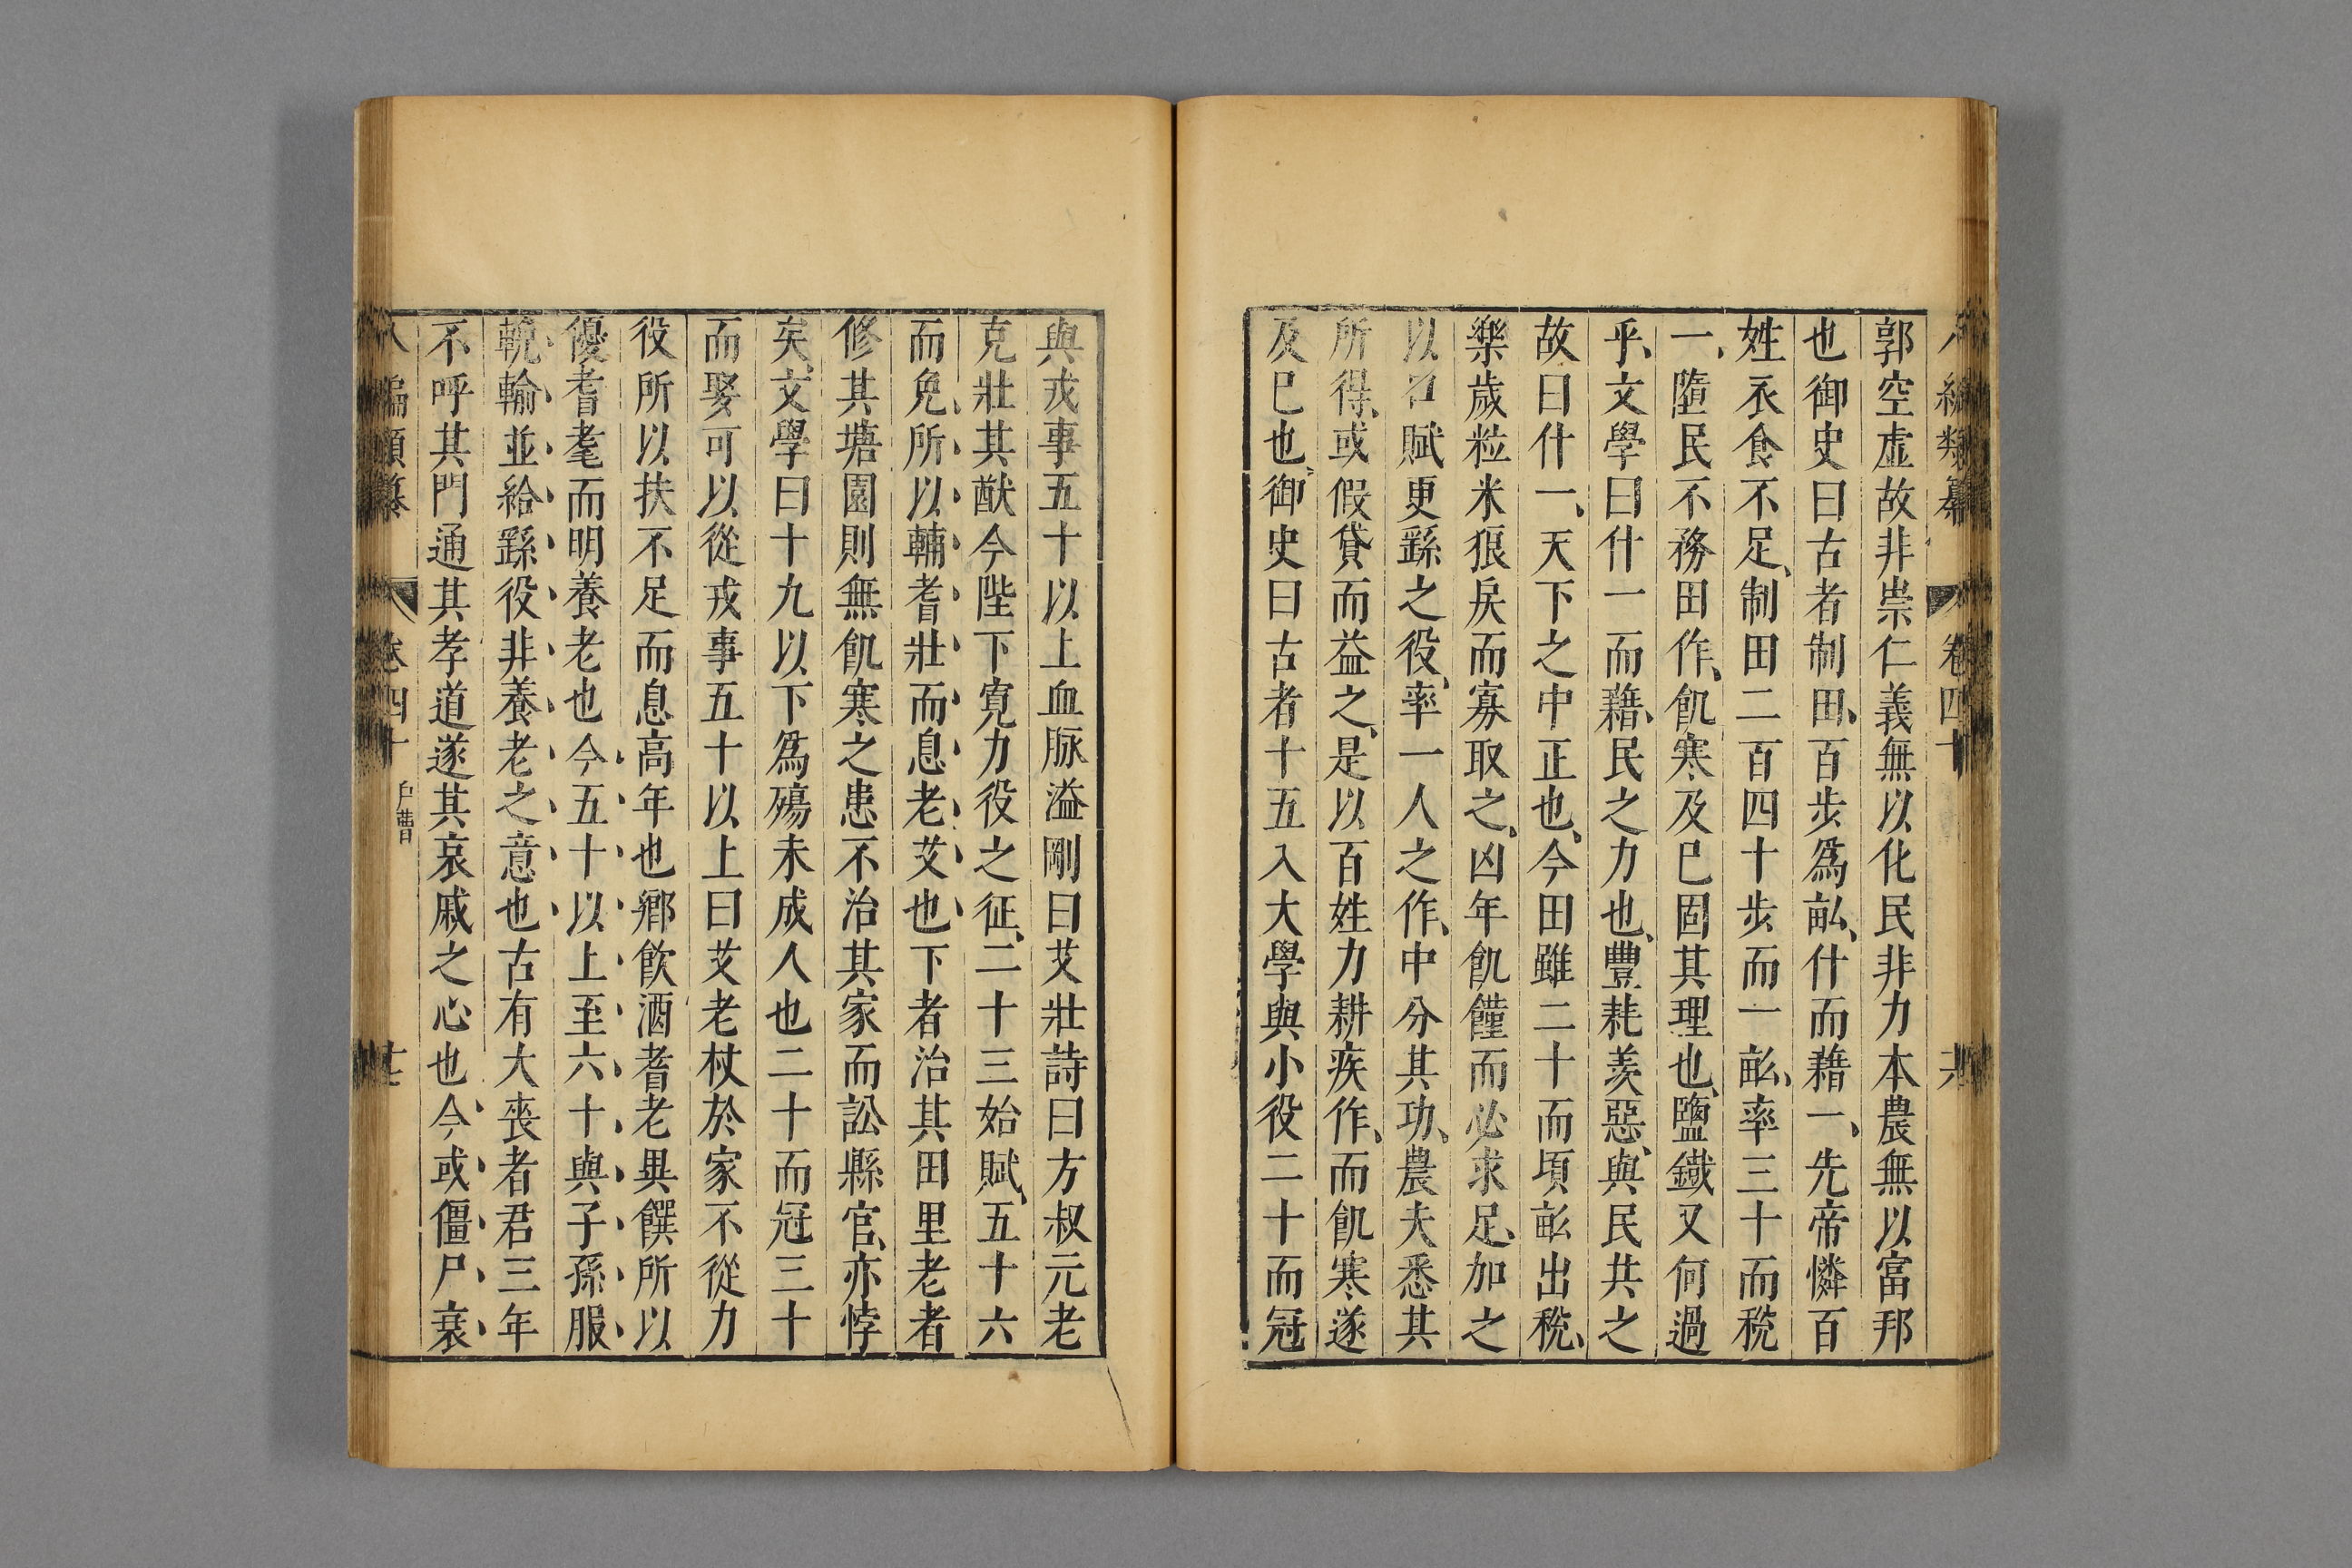 八編類纂 卷四十 十六
郭空虛故非崇仁義無以化民非力本農無以富邦
也御史曰古者制田、百步爲畝、什而藉一、先帝憐百
姓衣食不足、制田二百四十步而一畝、率三十而稅
一、墮民不務田作、飢寒及已固其理也、鹽鐵又何過
乎、文學曰什一而藉、民之力也、豐耗羨惡、與民共之
故曰什一、天下之中正也、今田雖二十而頃畝出稅、
樂歲粒米狼戾而寡取之、凶年飢饉而必求足、加之
以口賦更繇之役、率一人之作、中分其功、農夫悉其
所得、或假貸而益之、是以百姓力耕疾作、而飢寒遂
及已也、御史曰古者十五入大學與小役二十而冠
與戎事五十以上血脉溢剛曰艾壯詩曰方叔元老
克壯其猷今陛下寬力役之征、二十三始賦、五十六
而免、所以輔耆壯而息老艾也、下者治其田里老者
修其塘園則無飢寒之患不治其家而訟縣官、亦悖
矣、文學曰十九以下爲殤未成人也二十而冠三十
而娶可以從戎事五十以上曰艾老杖於家不從力
役所以扶不足而息高年也鄉飲酒耆老異饌所以
優耆耄而明養老也今五十以上至六十與子孫服
輓輸並給繇役非養老之意也古有大喪者君三年
不呼其門通其孝道遂其哀戚之心也今或僵尸衰
八編類纂 卷四十 戶曹 十七